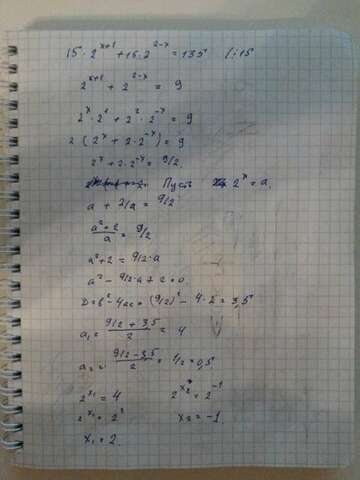 15 · 2^(x+1) + 15 · 2^(2-x) = 135 /:15
2^(x+1) + 2^(2-x) = 9
2^x · 2^1 + 2^2 · 2^(-x) = 9
2 (2^x + 2 · 2^(-x)) = 9
2^x + 2 · 2^(-x) = 9/2
Пусть 2^x = a.
a + 2/a = 9/2
(a^2+2)/a = 9/2
a^2+2 = 9/2 · a
a^2 - 9/2 · a + 2 = 0
D = b^2 - 4ac = (9/2)^2 - 4 · 2 = 3,5
a1 = (9/2 + 3,5)/2 = 4
a2 = (9/2 - 3,5)/2 = 1/2 = 0,5
2^x1 = 4 2^x2 = 2^-1
2^x1 = 2^2 x2 = -1.
x1 = 2.